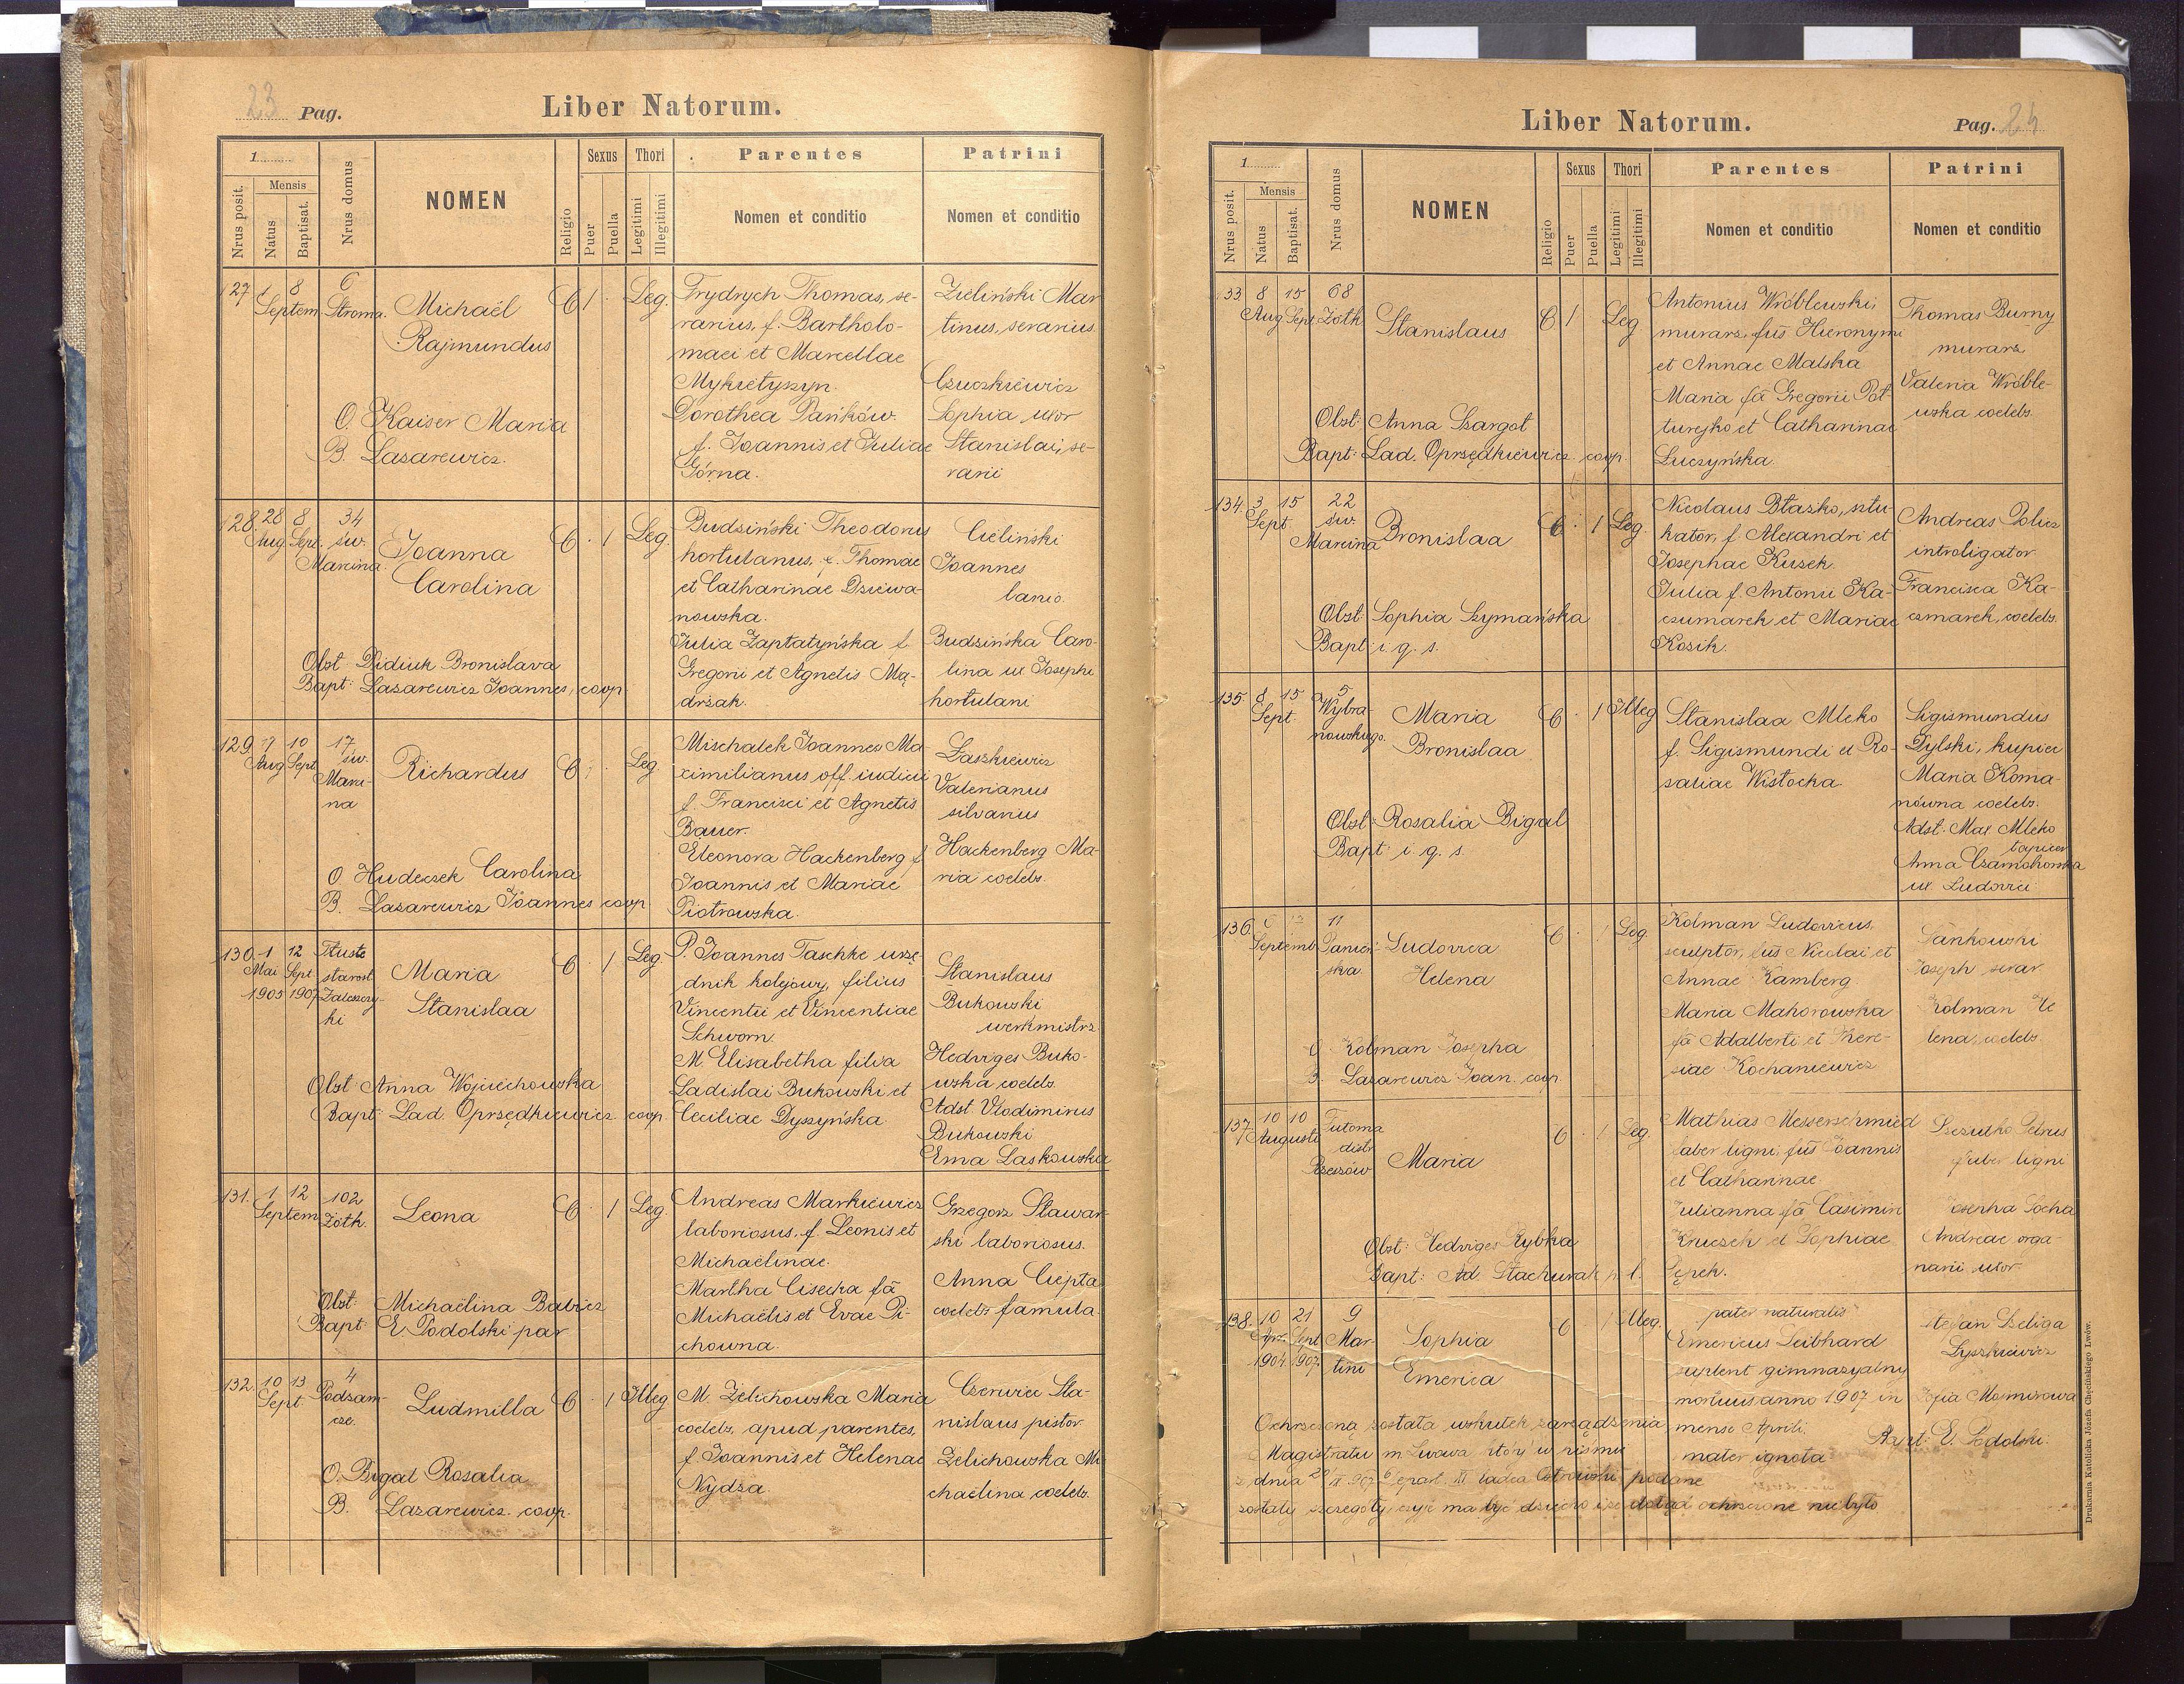 23 Pag.
Liber Natorum.
1
Nrus posit.
Mensis
Natus
Baptisat.
Nrus domus
NOMEN
Religio
Sexus
Puer
Puella
Thori
Legitimi
Illegitimi
Parentes
Nomen et conditio
Patrini
Nomen et conditio
127 1 8
Septem.
6
Stroma.
Michaël
Rajmundus
C 1 · Leg.
O. Kaiser Maria
B. Lasarewicz.
Frydrych Thomas, se-
rarius, f. Bartholo-
maei et Marcellae
Mykietyszyn.
Dorothea Pańków.
f. Joannis et Juliae
Górna.
Zieliński Mar
tinus, serarius.
Czuczkiewicz
Sophia uxor
Stanislai, se-
rarii
128. 28 8
Aug. Sept.
34
św.
Marcina.
Joanna
Carolina
C · 1 Leg.
Obst: Didiuk Bronislava
Bapt: Lasarewicz Joannes, coop.
Budziński Theodorus
hortulanus, f. Thomae
et Catharinae Dziewa-
nowska.
Julia Zapłatyńska f.
Gregorii et Agnetis Mą-
drzak.
Cieliński
Joannes
lanio.
Budzińska Caro-
lina ux Josephi
hortulani
129. 7 10
Aug Sept
17
św.
Marci-
na
Richardus
C 1 · Leg.
O Hudeczek Carolina
B. Lasarewicz Joannes coop
Mischalek Joannes Ma
ximilianus off. iudicii
f. Francisci et Agnetis
Bauer.
Eleonora Hackenberg f
Joannis et Mariae
Piotrowska.
Łaszkiewicz
Valerianus
silvarius
Hackenberg Ma-
ria coelebs.
130. 1 12
Mai Sept.
1905 1907
Tłuste
starost
Zaleszczy-
ki
Maria
Stanislaa
C · 1 Leg.
Obst: Anna Wojciechowska
Bapt: Lad. Oprzędkiewicz coop.
P. Joannes Taschke urzę-
dnik kolejowy, filius
Vincentii et Vincentiae
Schworn.
M. Elisabetha filia
Ladislai Bukowski et
Ceciliae Dyszyńska.
Stanislaus
Bukowski
werkmistrz.
Hedviges Buko-
wska coelebs.
Adst. Vlodimirus
Bukowski
Ema Laskowska
131. 1 12
Septem.
102
Żółk.
Leona
C · 1 Leg.
Obst: Michaëlina Babicz
Bapt: E Podolski par
Andreas Markiewicz
laboriosus, f. Leonis et
Michaëlinae.
Martha Cisecka fa
Michaëlis et Evae Pi-
chowna.
Grzegorz Stawar-
ski laboriosus.
Anna Ciepta
coelebs famula.
132. 10 13
Sept.
4
Podzam-
cze.
Ludmilla
C · 1 Illeg
O. Bigal Rosalia
B. Lasarewicz. coop.
M. Zelichowska Maria
coelebs, apud parentes,
f. Joannis et Helenae
Nydza
Czerwiec Sta-
nislaus pistor.
Zelichowska Mi
chaëlina coelebs.
Liber Natorum.
Pag. 24
1
Nrus posit.
Mensis
Natus
Baptisat.
Nrus domus
NOMEN
Religio
Sexus
Puer
Puella
Thori
Legitimi
Illegitimi
Parentes
Nomen et conditio
Patrini
Nomen et conditio
133 8 15
Aug Sept.
68
Żółk
Stanislaus
C 1 Leg
Obst: Anna Szargot
Bapt: Lad. Oprzędkiewicz. coop.
Antonius Wróblewski,
murarz, fus Hieronymi
et Annae Malska
Maria fa Gregorii Poł-
turejko et Catharinae
Łuczyńska.
Thomas Burny
murarz
Valeria Wróble-
wska coelebs.
134. 3 15
Sept.
22
św.
Marcina
Bronislaa
C · 1 Leg.
Obst: Sophia Szymańska
Bapt: i. q. s.
Nicolaus Błaszko, sztu
kator, f. Alexandri et
Josephae Kusek.
Julia f. Antonii Ka-
czmarek et Mariae
Kosik.
Andreas Polisz
introligator
Francisca Ka-
czmarek, coelebs.
135. 8 15
Sept.
5
Wybra-
nowskiego.
Maria
Bronislaa
C · 1 Illeg
Obst: Rosalia Bigal
Bapt: i. q. s.
Stanislaa Mleko
f. Sigismundi et Ro-
saliae Wistocka.
Sigismundus
Dylski, kupiec
Maria Koma-
nówna coelebs.
Adst: Max Mleko
tapicer
Anna
ux Ludovici
136. 6 12
Septemb.
11
Panień-
ska.
Ludovica
Helena
C · 1 Leg.
O Kolman Josepha
B. Lasarewicz Joan. coop.
Kolman Ludovicus,
sculptor, fus Nicolai et
Annae Kamberg
Maria Mahorowska
fa Adalberti et There-
siae Kochaniewicz
Jankowski
Joseph serar
Kolman He
lena, coelebs.
137. 10 10
Augusti
Tutoma
distr.
Rzeszów
Maria
C · 1 Leg.
Obst: Hedviges Rybka
Bapt: Ad. Stachurak p. l.
Mathias Messerschmied
faber ligni, fus Joannis
et Catharinae
Julianna fa Casimiri
Kruczek et Sophiae
Lępek.
Szczutko Petrus
faber ligni
Josepha Socha
Andreae orga-
narii uxor.
138. 10 21
Apr. Sept
1904 1907
9
Mar-
tini
Sophia
Emerica
C · 1 Illeg.
pater naturalis
Emericus Leibhard
suplent gimnazyalny
mortuus anno 1907 in
mense Aprili.
mater ignota
Stefan Szeliga
Łyszkiewicz
Zofia
Bapt: E. Podolski.
Ochrzczoną została wskutek zarządzenia
Magistratu m. Lwowa który w piśmie
z dnia 20/IX 907 depart. III radca Ostrowski podane
zostały szczegóły czyje ma być dziecko i że dotąd ochrzczone nie było.
Drukarnia Katolicka Józefa Chęcińskiego Lwów.